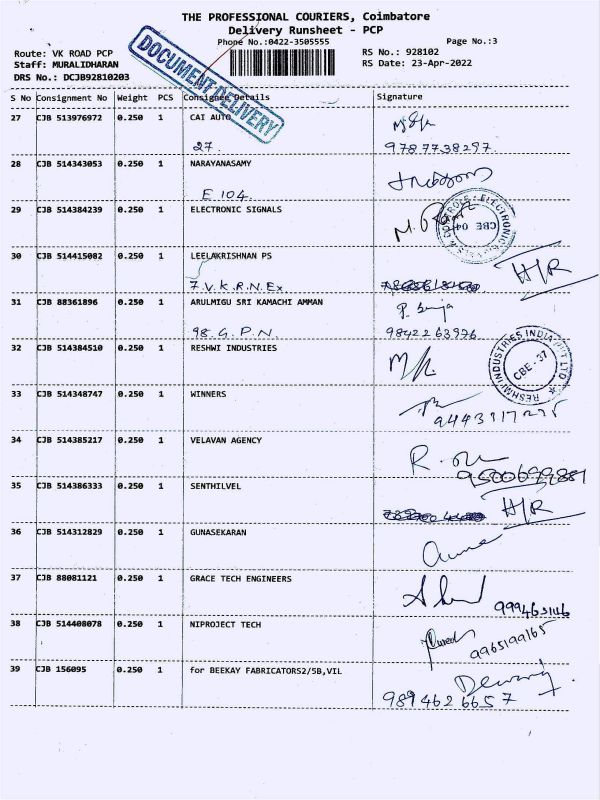 THE PROFESSIONAL COURIERS, Coimbatore
Delivery Runsheet - PCP
Phone No.:0422-3505555
Page No.:3
Route: VK ROAD PCP
RS No.: 928102
Staff: MURALIDHARAN
RS Date: 23-Apr-2022
DRS No.: DCJB92810203
DOCUMENT DELIVERY
S No Consignment No Weight PCS Consignee Details Signature
27 CJB 513976972 0.250 1 CAI AUTO
27. 9787738297
28 CJB 514343053 0.250 1 NARAYANASAMY
E 104.
29 CJB 514384239 0.250 1 ELECTRONIC SIGNALS
CBE 04
30 CJB 514415082 0.250 1 LEELAKRISHNAN PS
H/R
7.V.K.R.N.Ex
31 CJB 88361896 0.250 1 ARULMIGU SRI KAMACHI AMMAN
98 G.P.N. 9842263976
32 CJB 514384510 0.250 1 RESHWI INDUSTRIES
RESHMI INDUSTRIES INDIA PVT LTD
CBE - 37
33 CJB 514348747 0.250 1 WINNERS
34 CJB 514385217 0.250 1 VELAVAN AGENCY
35 CJB 514386333 0.250 1 SENTHILVEL
H/R
36 CJB 514312829 0.250 1 GUNASEKARAN
37 CJB 88081121 0.250 1 GRACE TECH ENGINEERS
38 CJB 514408078 0.250 1 NIPROJECT TECH
9965199165
39 CJB 156095 0.250 1 for BEEKAY FABRICATORS2/5B,VIL
9894626657